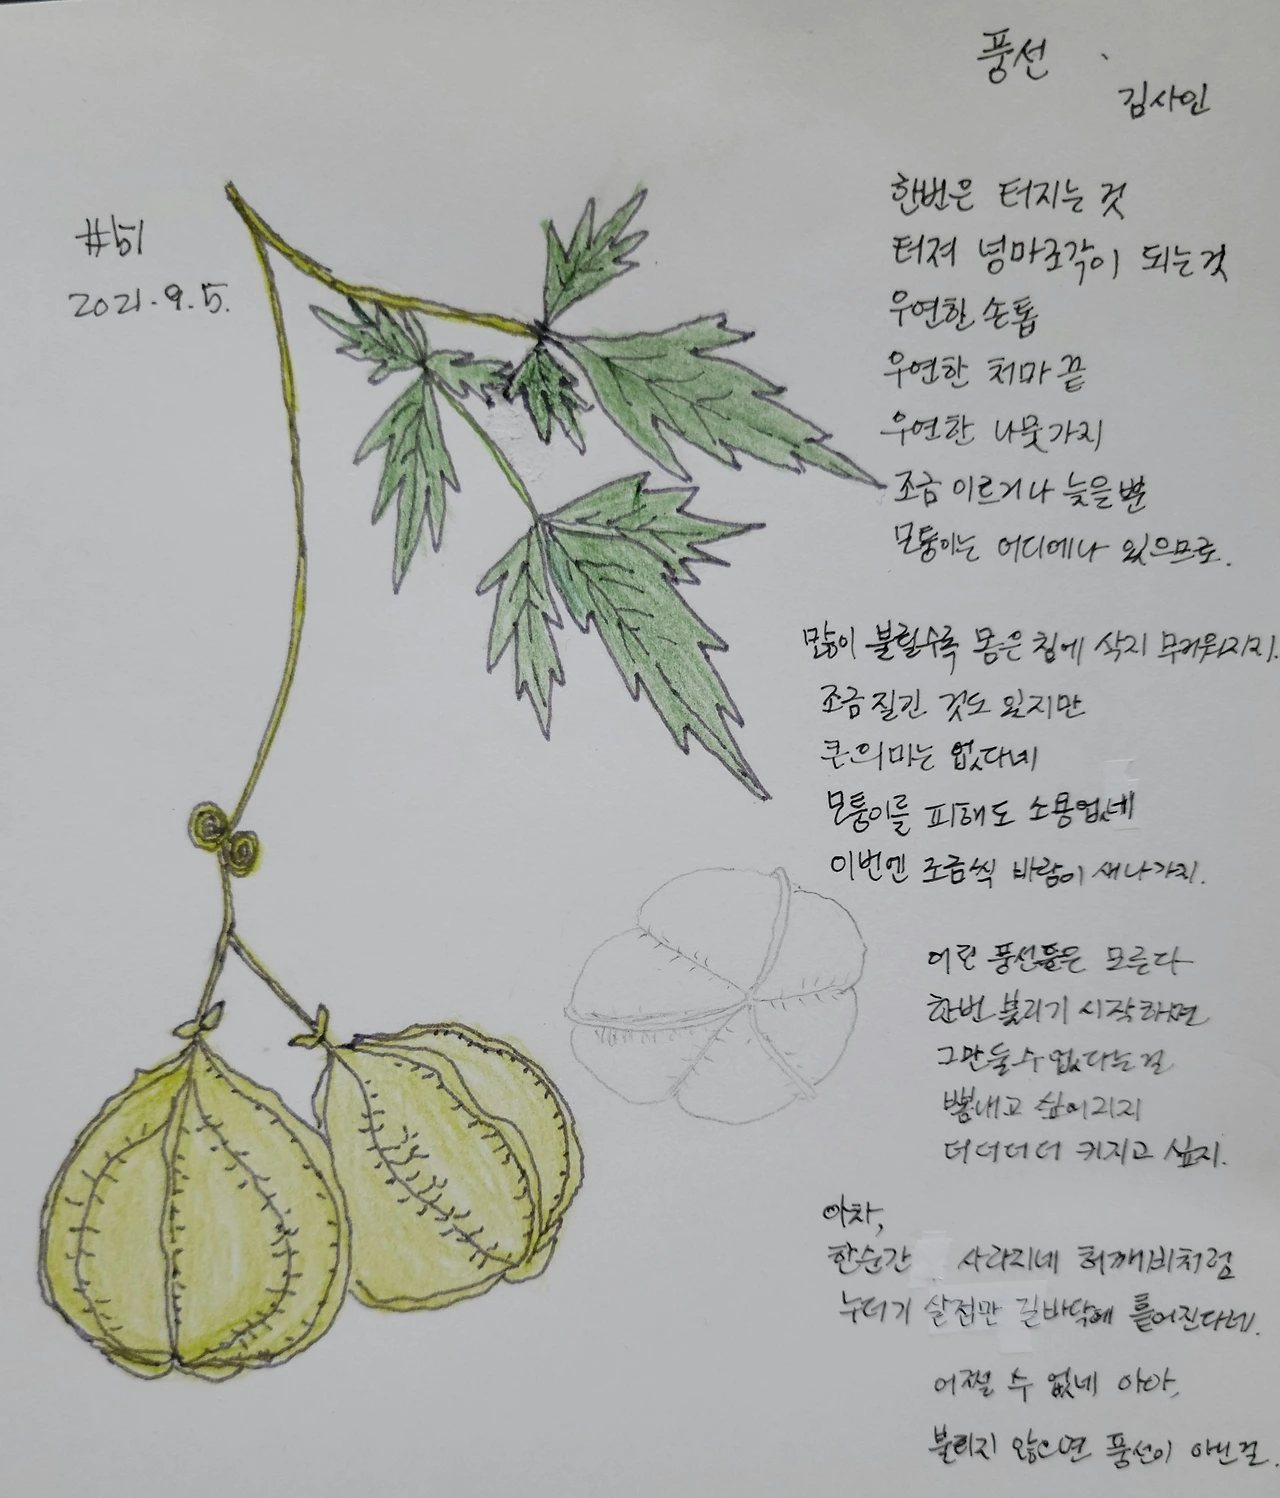 풍선
김사인
#51
2021.9.5.
한번은 터지는 것
터져 넝마조각이 되는것
우연한 손톱
우연한 처마 끝
우연한 나뭇가지
조금 이르거나 늦을 뿐
모퉁이는 어디에나 있으므로.
많이 불릴수록 몸은 침에 삭지 무거워지지.
조금 질긴 것도 있지만
큰의미는 없다네
모퉁이를 피해도 소용없네
이번엔 조금씩 바람이 새나가지.
어린 풍선들은 모른다
한번 불리기 시작하면
그만둘수 없다는걸
뽐내고 싶어지지
더더더더 커지고 싶지.
아차,
한순간 사라지네 허깨비처럼
누더기 살점만 길바닥에 흩어진다네.
어쩔 수 없네 아아,
불리지 않으면 풍선이 아닌걸.